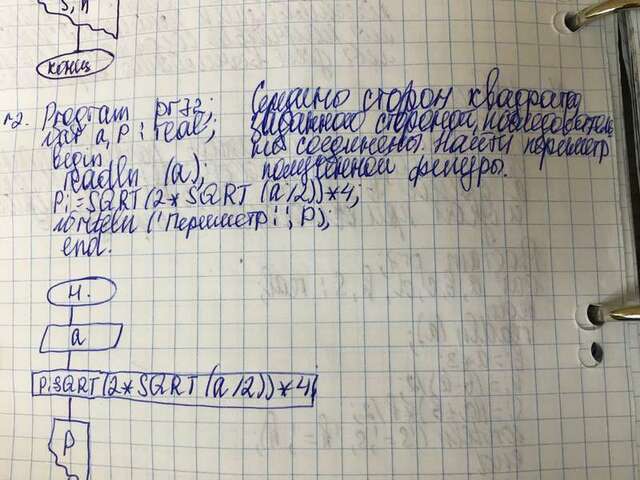 S, n
конец
n2. Program pr72;
var a, P : real;
begin
readln (a);
P:=SQRT(2*SQRT(a/2))*4;
writeln ('Периметр: ', P);
end.
Середины сторон квадрата,
заданного стороной, последователь
но соединены. Найти периметр
полученной фигуры.
н.
a
P:=SQRT(2*SQRT(a/2))*4;
P